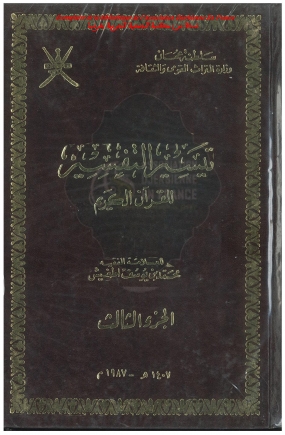 سلطنة عمان
وزارة التراث القومي والثقافة
تيسير التفسير
للقرآن الكريم
للعلامة الفقيه
محمد بن يوسف اطفيش
الجزء الثالث
١٤٠٧ هـ - ١٩٨٧ م